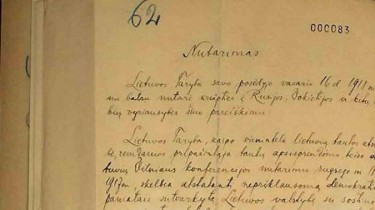 62
000083
Nutarimas
Lietuvos Taryba savo posėdyje vasario 16 d. 1918 m.
balsu nutarė kreiptis į Rusijos, Vokietijos ir kitų
vyriausybes šiuo pareiškimu
Lietuvos Taryba, kaipo vienintelė lietuvių tautos
remdamos pripažintąja tautų apsisprendimo teise ir
Vilniaus konferencijos nutarimu rugsėjo m
1917 m, skelbia atstatanti nepriklausomą demokrat
pamatais sutvarkytą Lietuvos valstybę su sostine